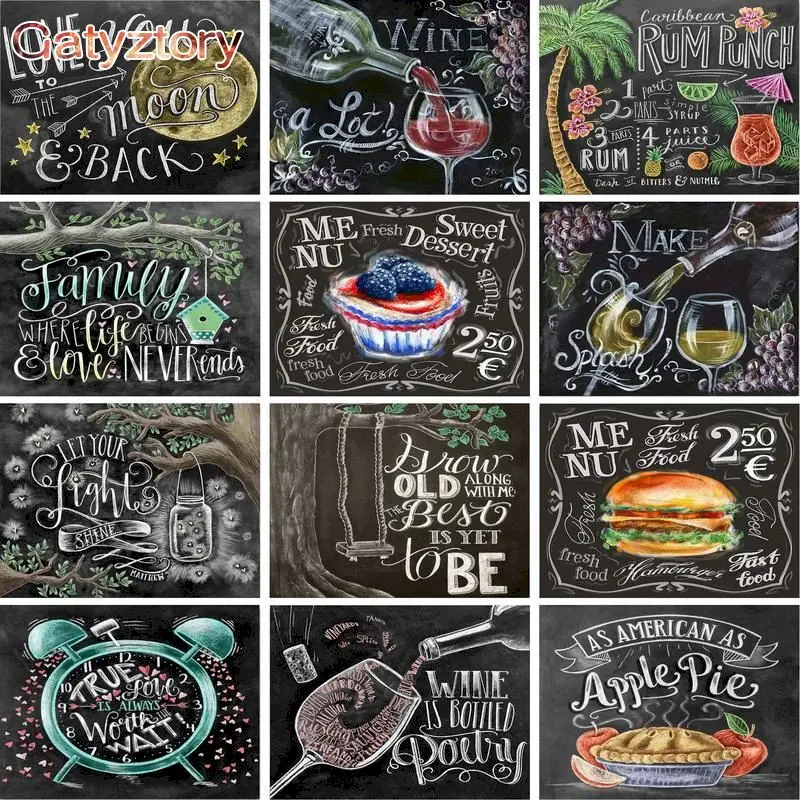 Gatyztory
LOVE YOU
TO
THE
moon
& BACK
WINE
a Lot!
2005
Caribbean
RUM PUNCH
1 part
2 PARTS simple
SYRUP
3 PARTS
RUM
4 PARTS
juice
OR
Dash of BITTERS & NUTMEG
Family
WHERE life BEGINS
& love NEVER ends
ME
NU
Fresh
Sweet
Dessert
Food
Fruits
Fresh
Food
fresh
food
Fresh Food
2 50
€
MAKE
a
Splash!
LET YOUR
Light
SHINE
MATTHEW
Grow
OLD ALONG
WITH ME
THE Best
IS YET
to BE
ME
NU
Fresh
Food
2 50
€
Fresh
Food
fresh
food
Hamburger
Fast
food
12
10
9
8
7
6
5
4
TRUE Love
IS ALWAYS
Worth the
WAIT!
VINEYARDS
WINE
IS BOTTLED
Poetry
AS AMERICAN AS
Apple Pie